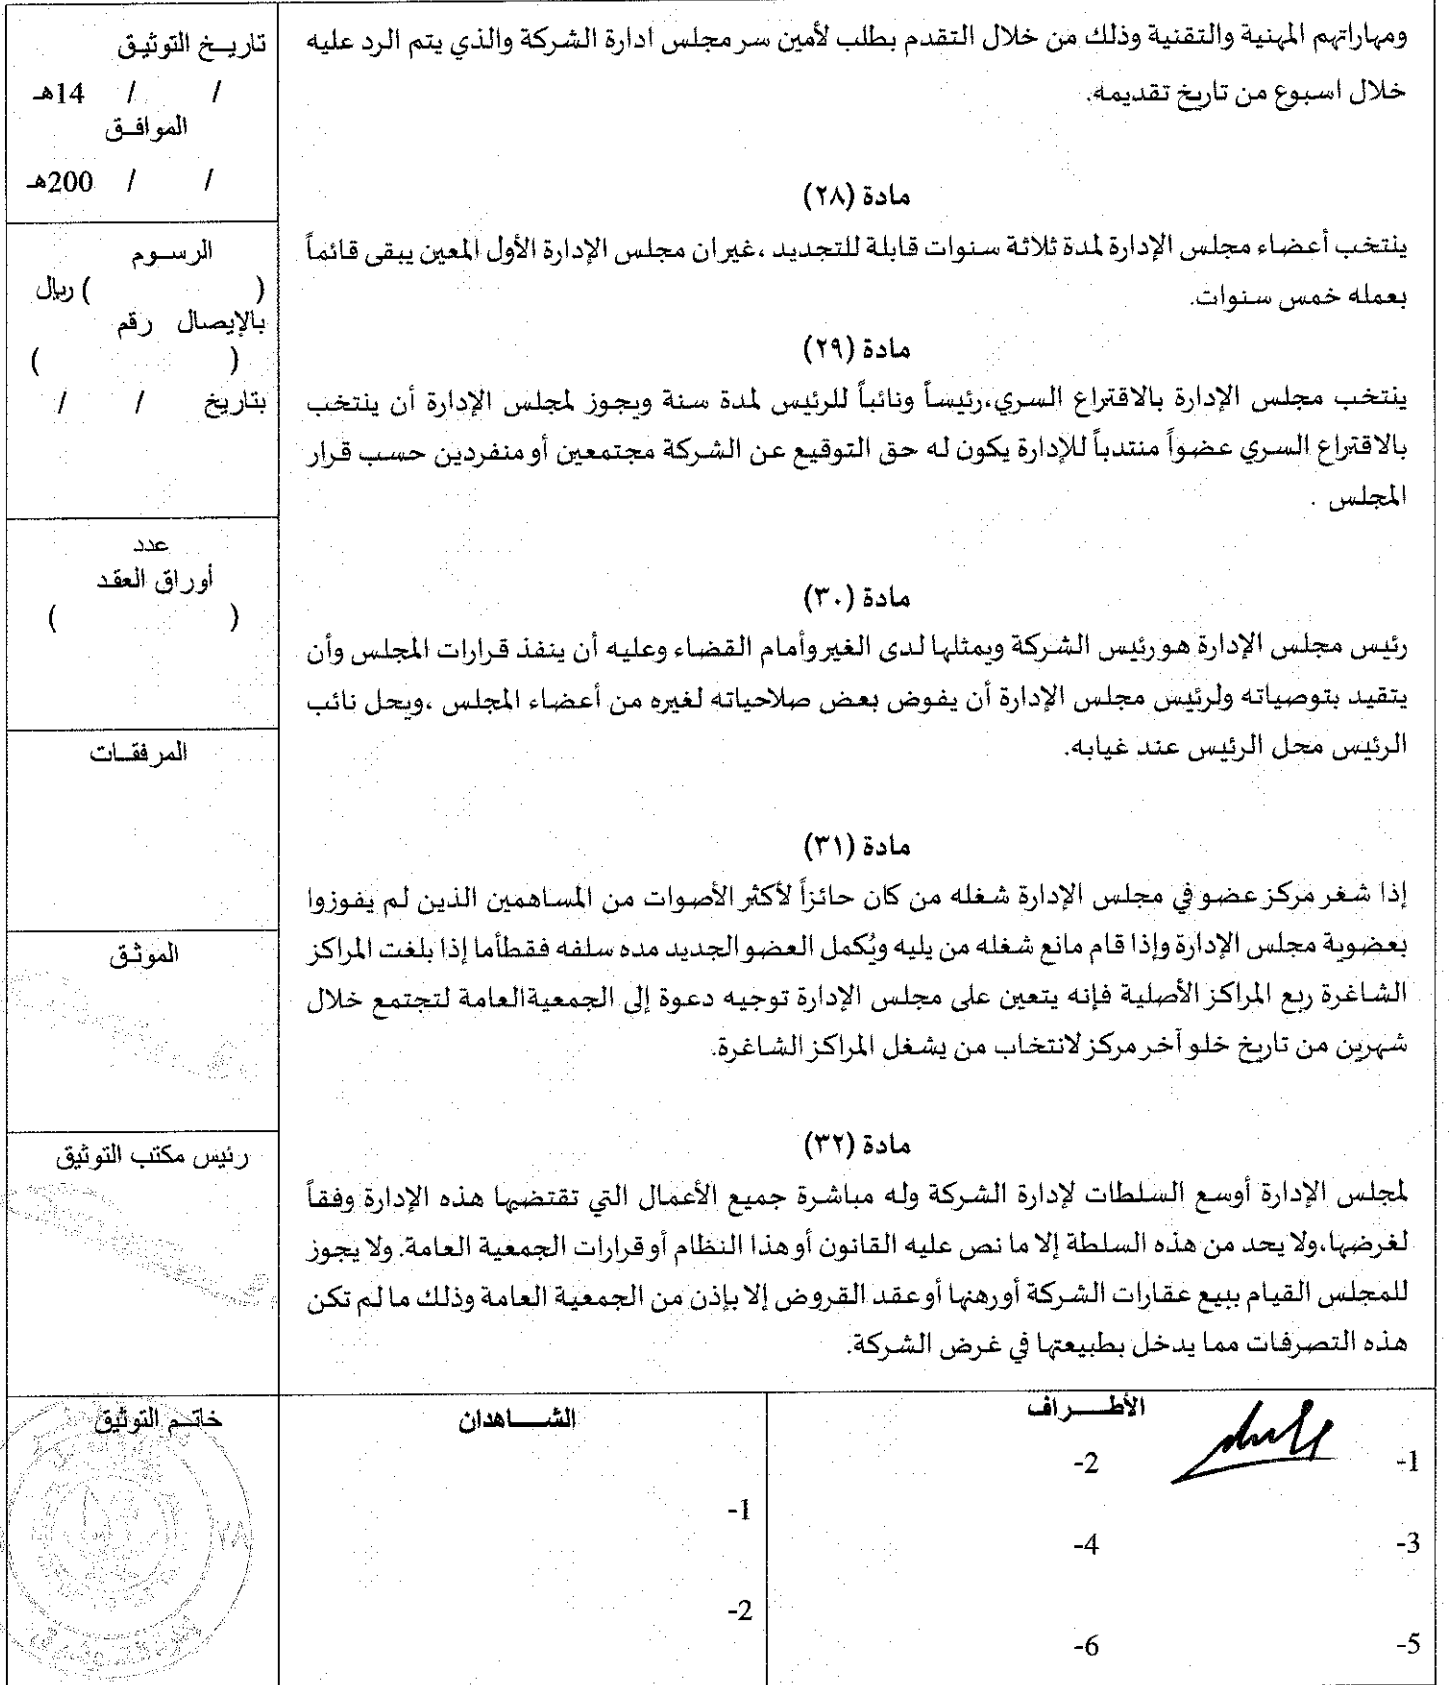 ومهاراتهم المهنية والتقنية وذلك من خلال التقدم بطلب لأمين سر مجلس ادارة الشركة والذي يتم الرد عليه
خلال اسبوع من تاريخ تقديمه.
مادة (٢٨)
ينتخب أعضاء مجلس الإدارة لمدة ثلاثة سنوات قابلة للتجديد ،غير ان مجلس الإدارة الأول المعين يبقى قائماً
بعمله خمس سنوات.
مادة (٢٩)
ينتخب مجلس الإدارة بالاقتراع السري،رئيساً ونائباً للرئيس لمدة سنة ويجوز لمجلس الإدارة أن ينتخب
بالاقتراع السري عضواً منتدباً للإدارة يكون له حق التوقيع عن الشركة مجتمعين أو منفردين حسب قرار
المجلس .
مادة (٣٠)
رئيس مجلس الإدارة هو رئيس الشركة ويمثلها لدى الغير وأمام القضاء وعليه أن ينفذ قرارات المجلس وأن
يتقيد بتوصياته ولرئيس مجلس الإدارة أن يفوض بعض صلاحياته لغيره من أعضاء المجلس ،ويحل نائب
الرئيس محل الرئيس عند غيابه.
مادة (٣١)
إذا شغر مركز عضو في مجلس الإدارة شغله من كان حائزاً لأكثر الأصوات من المساهمين الذين لم يفوزوا
بعضوية مجلس الإدارة وإذا قام مانع شغله من يليه ويُكمل العضو الجديد مده سلفه فقطأما إذا بلغت المراكز
الشاغرة ربع المراكز الأصلية فإنه يتعين على مجلس الإدارة توجيه دعوة إلى الجمعيةالعامة لتجتمع خلال
شهرين من تاريخ خلو آخر مركز لانتخاب من يشغل المراكز الشاغرة.
مادة (٣٢)
لمجلس الإدارة أوسع السلطات لإدارة الشركة وله مباشرة جميع الأعمال التي تقتضيها هذه الإدارة وفقاً
لغرضها،ولا يحد من هذه السلطة إلا ما نص عليه القانون أو هذا النظام أو قرارات الجمعية العامة. ولا يجوز
للمجلس القيام ببيع عقارات الشركة أو رهنها أو عقد القروض إلا بإذن من الجمعية العامة وذلك ما لم تكن
هذه التصرفات مما يدخل بطبيعتها في غرض الشركة.
تاريـخ التوثيق
/ / 14هـ
الموافـق
/ / 200هـ
الرسـوم
( ) ريال
بالإيصال رقم
( )
بتاريخ / /
عدد
أوراق العقد
( )
المرفقـات
الموثق
رئيس مكتب التوثيق
الأطـــراف
1-
2-
3-
4-
5-
6-
الشـــاهدان
1-
2-
خاتـم التوثيق